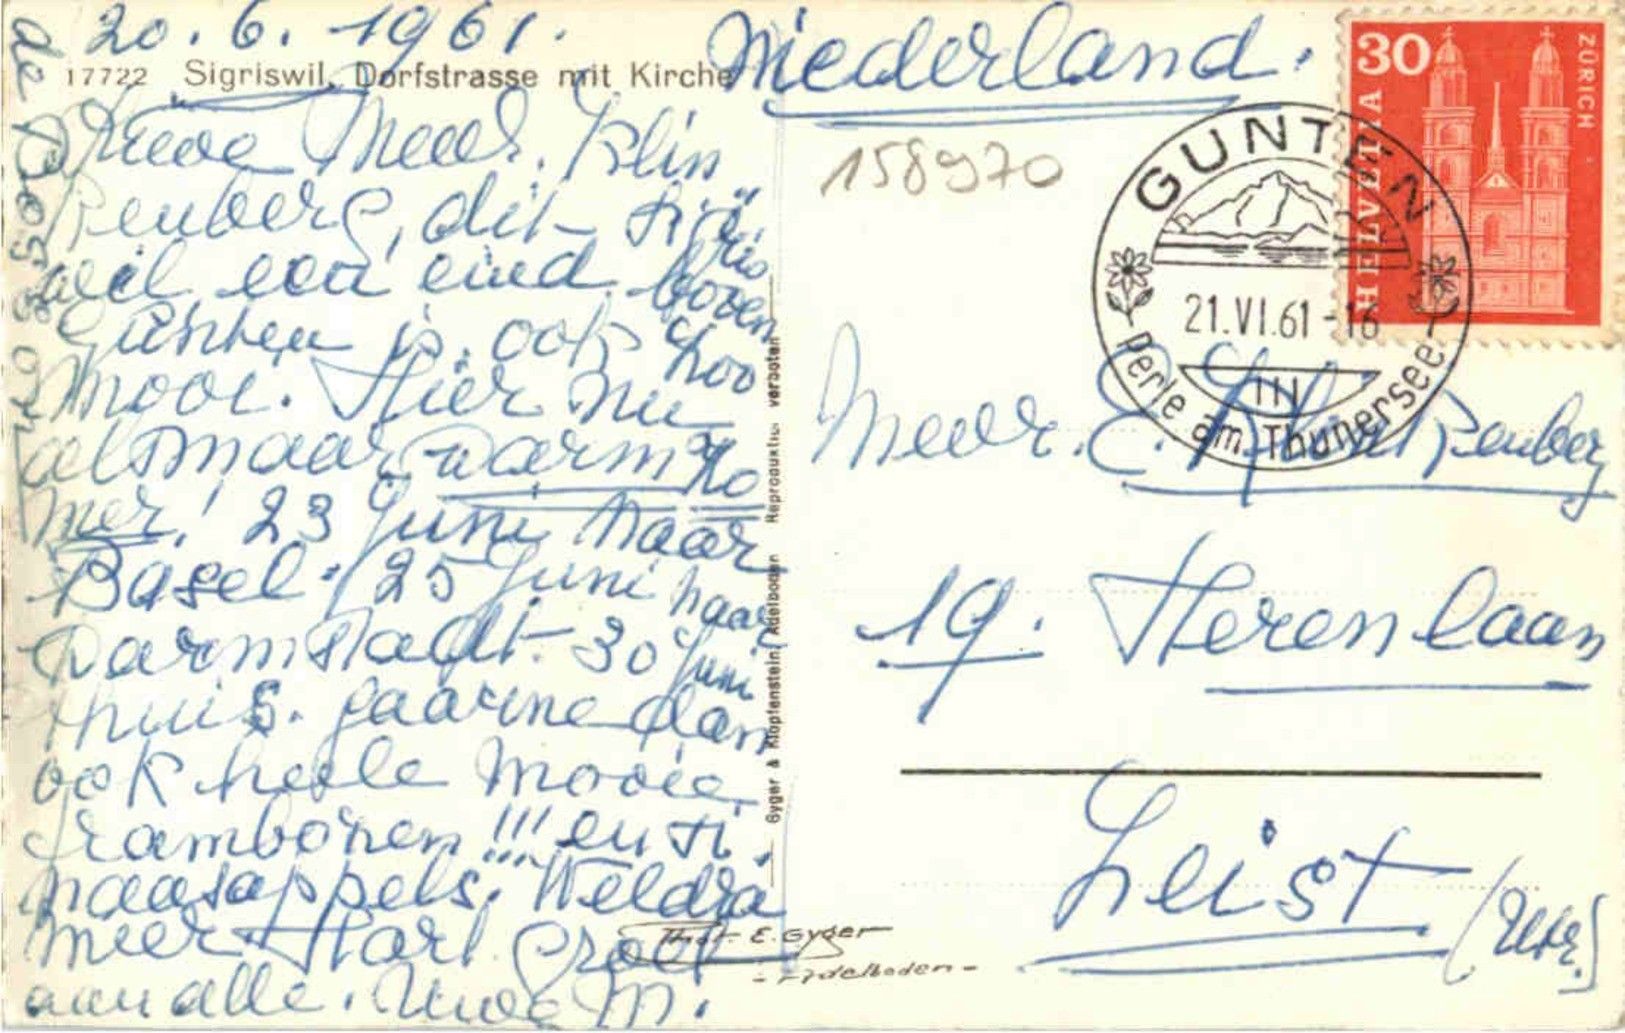 20.6.1961.
17722 Sigriswil, Dorfstrasse mit Kirche
Lieve Mevr. Klin
Renberg, dit
een eind boven
Gunten is ook zoo
mooi. Hier nu
alsmaar warm zo
mer! 23 Juni naar
Basel. 25 Juni naar
Darmstadt. 30 Juni
thuis. gaarne dan
ook heele mooie
frambozen!!! en si.
naasappels. Weldra
meer Hart. Groet
aan alle. Uwe M.
de
Reproduktion verboten
Gyger & Klopfenstein, Adelboden
Phot. E. Gyger
- Adelboden -
Niederland.
158970
30
HELVETIA
ZÜRICH
GUNTEN
21.VI.61-16
III
Perle am Thunersee
Mevr. E. Renberg
19. Herenlaan
Zeist
(Utr.)